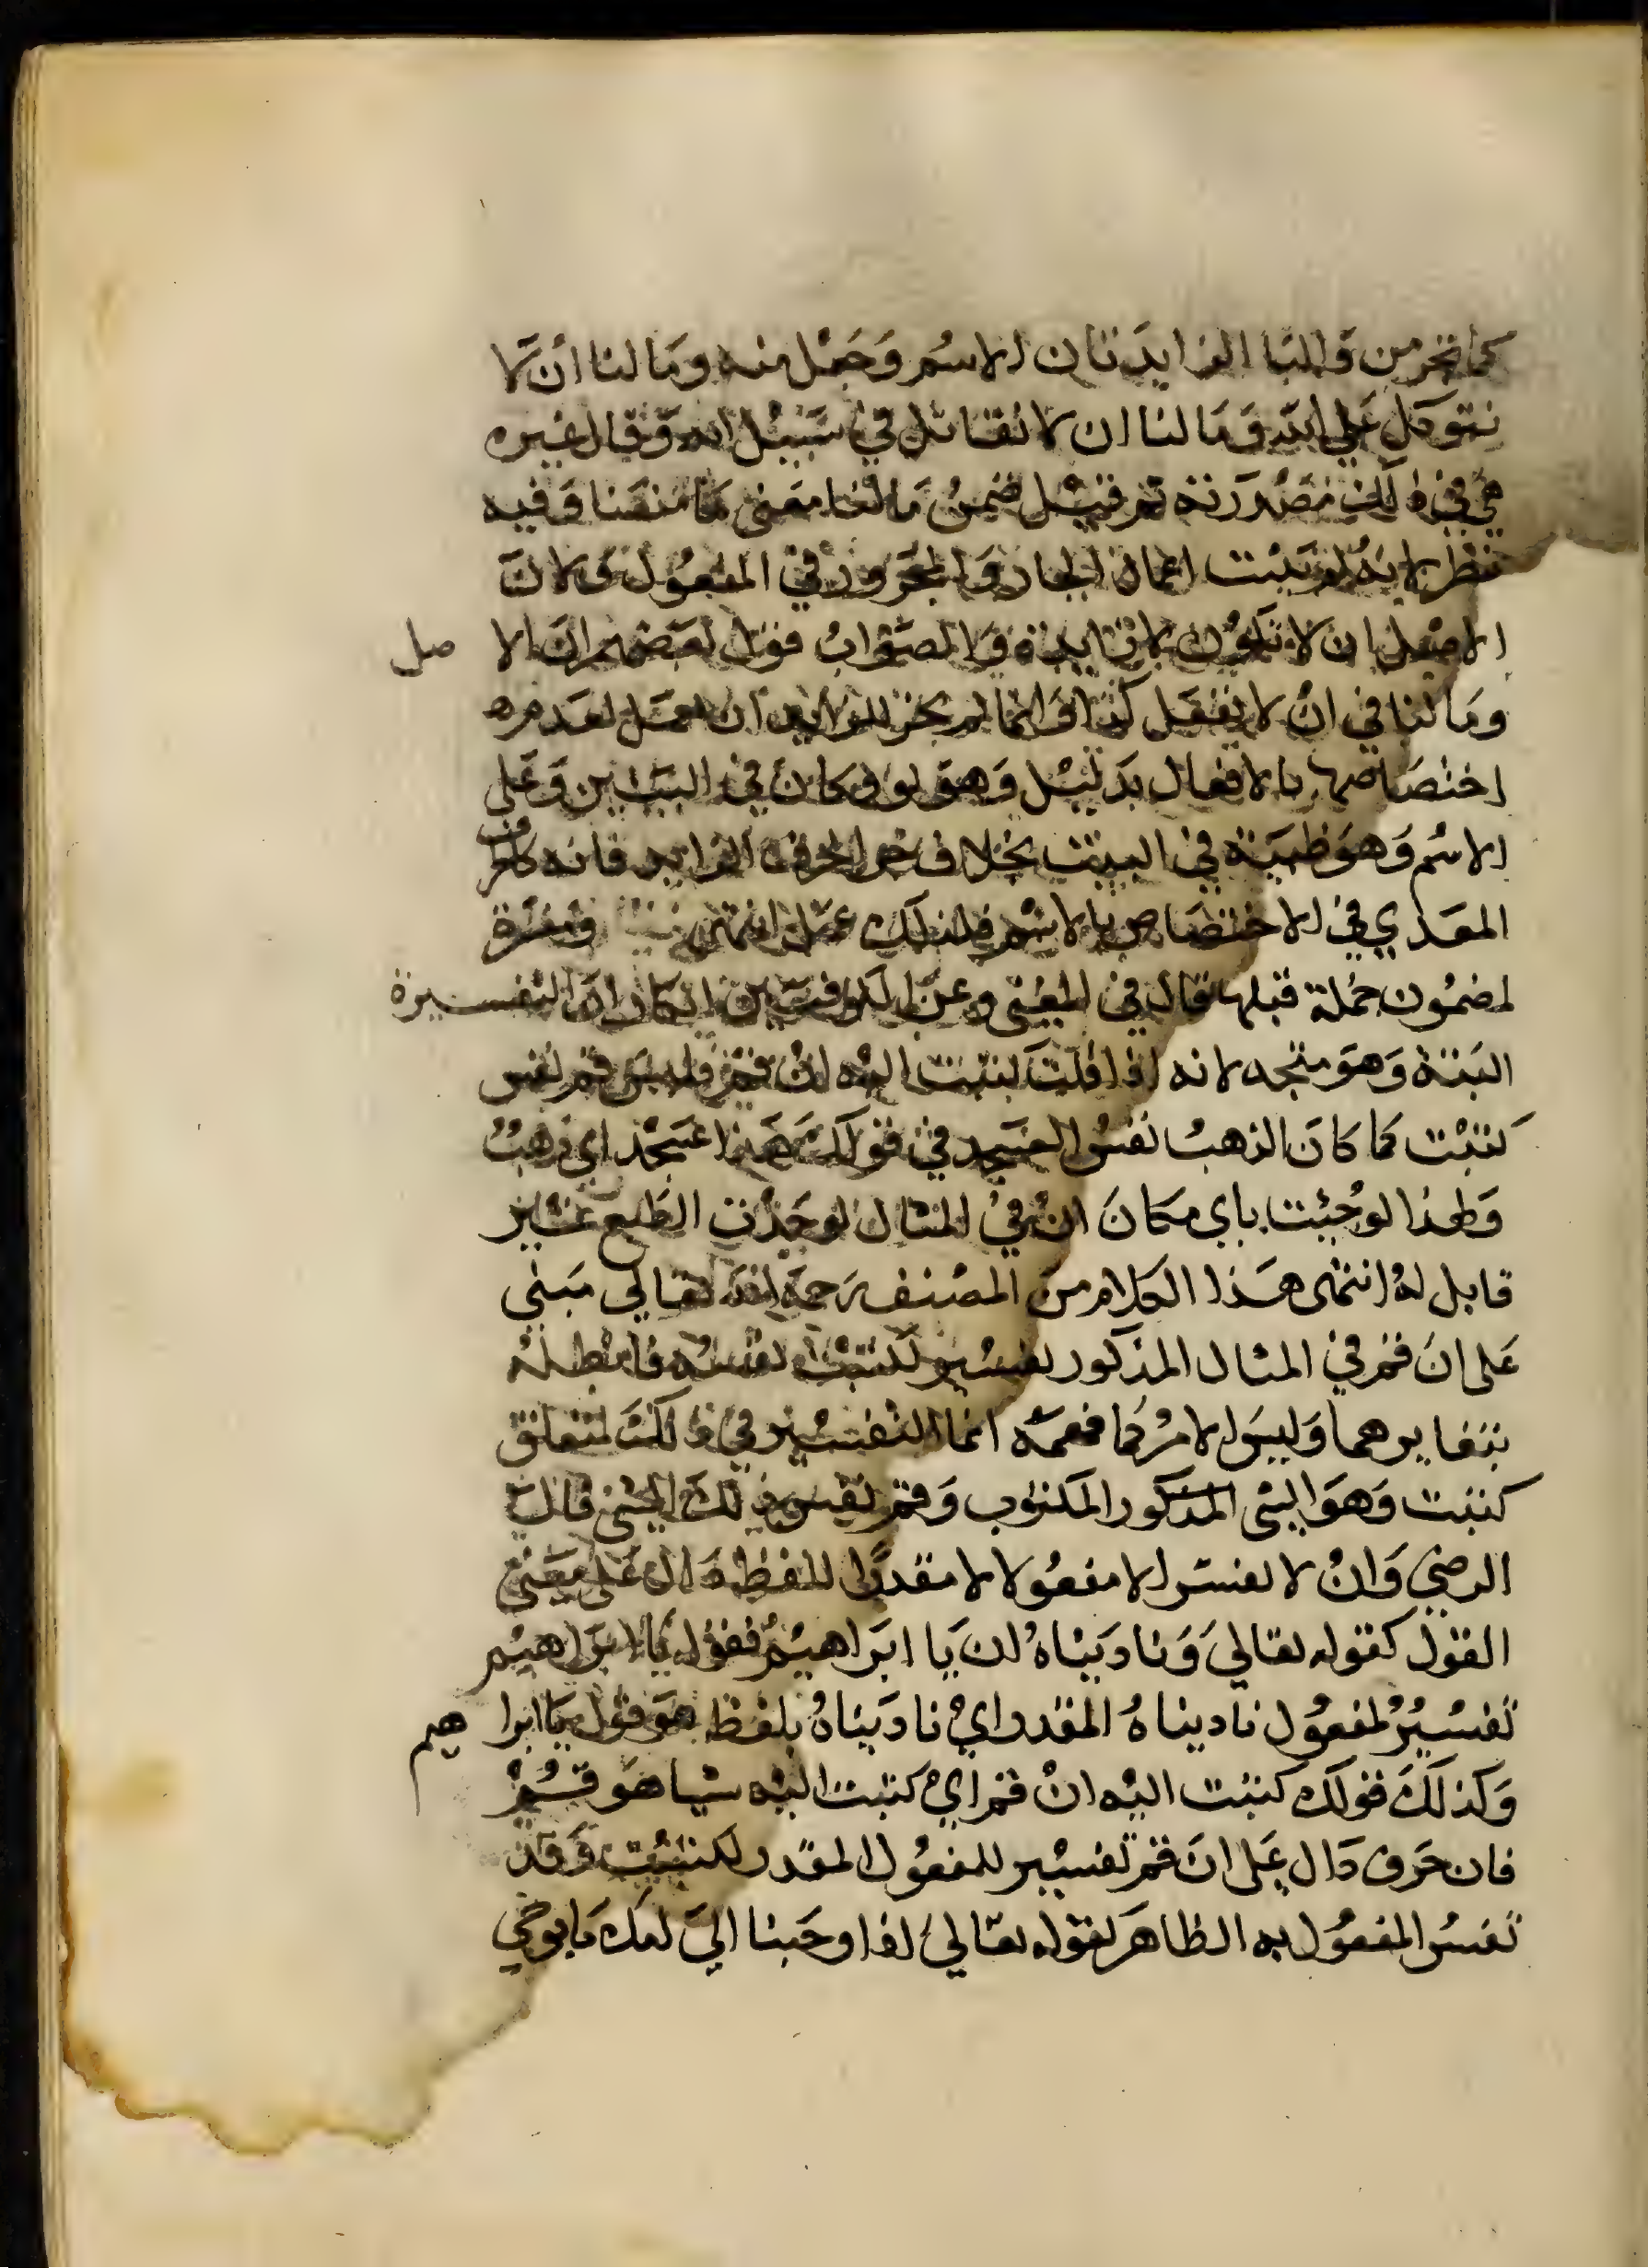 كما تجر من والبا الزايدتان الاسم وجعل منه وما لنا أن لا
نتوكل على الله وما لنا ان لا نقاتل في سبيل الله وقال غيره
هي في ذلك مصدرية ثم قيل ضمن ما لنا معنى ما منعنا وفيه
نظر لانه لم يثبت اعمال الجار والمجرور في المفعول ولان
الاصل ان لا تكون لا زايدة والصواب قول بعضهم ان الاصل
وما لنا في ان لا نفعل كذا وانما لم يجز للزايد ان تعمل لعدم
اختصاصها بالافعال بدليل وهو لو وكان في البيتين وعلى
الاسم وهو ظبية في البيت بخلاف حرف الجر الزايد فانه كالحرف
المعدي في الاختصاص بالاسم فلذلك عمل انتهى ومفسرة
لمضمون جملة قبلها قال في المغني وعن الكوفيين انكار ان التفسيرة
البتة وهو متجه لانه اذا قلت كتبت اليه ان قم فليس قم نفس
كتبت كما كان الذهب نفس العسجد في قولك هذا عسجد اي ذهب
ولهذا لو جئت باي مكان ان في المثال لوجدت الطبع غير
قابل له انتهى هذا الكلام من المصنف رحمه الله تعالى مبني
على ان قم في المثال المذكور تفسير لكتبت نفسه فابطله
بتغايرهما وليس الامر كما فهمه انما التفسير في ذلك لمتعلق
كتبت وهو الشي المذكور المكتوب وقم نفس ذلك الشي قال
الرضي وان لا تفسر الا مفعولا لا مقدرا للفظ دال على معنى
القول كقوله تعالى وناديناه ان يا ابراهيم فقوله يا ابراهيم
تفسير لمفعول ناديناه المقدر اي ناديناه بلفظ هو قول يا ابراهيم
وكذلك قولك كتبت اليه ان قم اي كتبت اليه شيا هو قم
فان حرف دال على ان قم تفسير للمفعول المقدر لكتبت وقد
تفسر المفعول به الظاهر كقوله تعالى اذ اوحينا الى امك ما يوحى